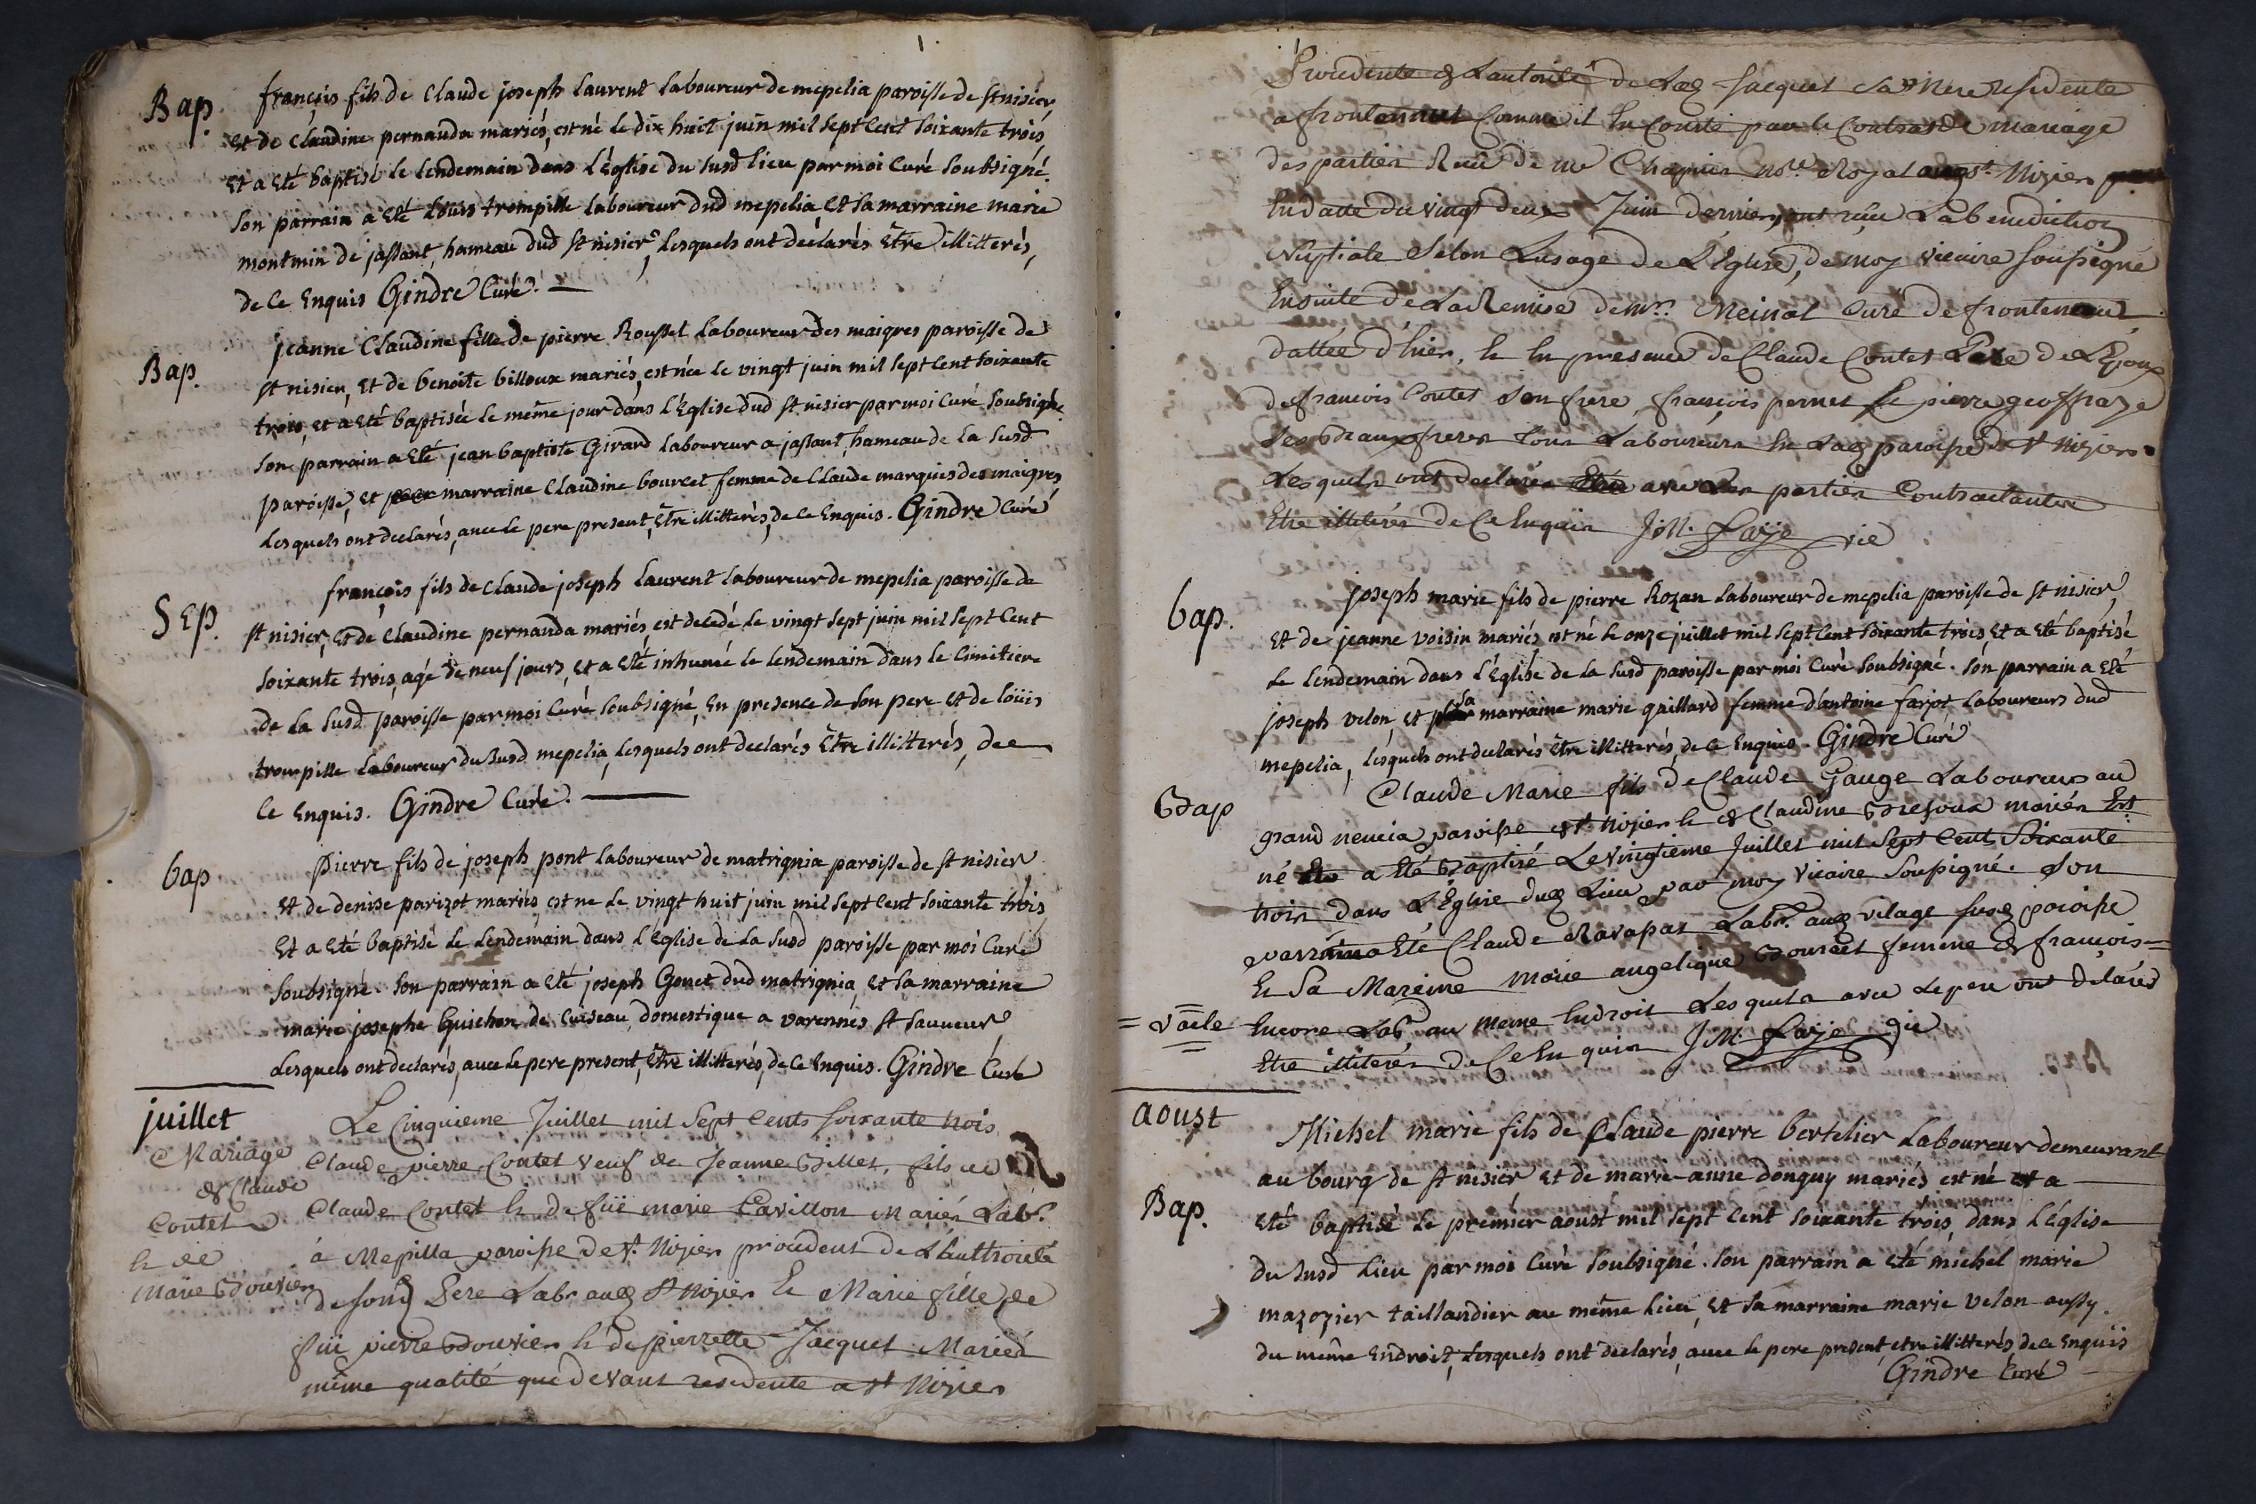 Bap.
françois fils de Claude joseph Laurent Laboureur de mepelia paroisse de st nisier,
et de Claudine pernauda mariés, est né le dix huit juin mil sept Cent soixante trois,
et a Eté baptisé le lendemain dans L'Eglise du susd lieu par moi Curé soubsigné.
son parrain a Eté Louis trompille Laboureur dud mepelia et sa marraine marie
montmin de jassant, hameau dud st nisier, lesquels ont declarés Etre illitterés,
de Ce Enquis Gindre Curé.
Bap.
jeanne Claudine fille de pierre Roussel Laboureur des maigres paroisse de
st nisier, et de benoite billoux mariés, est née le vingt juin mil sept Cent soixante
trois, et a Eté baptisée le même jour dans L'Eglise dud st nisier par moi Curé soubsigné.
son parrain a Eté jean baptiste Girard Laboureur a jassant, hameau de la susd
paroisse, et marraine Claudine bourcet femme de Claude marquis des maigres
Lesquels ont declarés, avec le pere present, Etre illitterés, de Ce Enquis. Gindre Curé
Sep.
françois fils de Claude joseph Laurent Laboureur de mepelia paroisse de
st nisier, et de Claudine pernauda mariés, est decedé le vingt sept juin mil sept Cent
soixante trois, agé de neuf jours, et a Eté inhumé le lendemain dans le Cimitiere
de la susd paroisse par moi Curé soubsigné, En presence de son pere et de loüis
trompille Laboureur du susd mepelia, Lesquels ont declarés Etre illitterés, de
Ce Enquis. Gindre Curé.
bap
Pierre fils de joseph pont Laboureur de matrignia paroisse de st nisier,
et de denise parizot mariés est ne le vingt huit juin mil sept Cent soixante trois,
et a Eté baptisé le lendemain dans L'Eglise de la susd paroisse par moi Curé
soubsigné. son parrain a Eté joseph Gonet dud matrignia, et sa marraine
marie josephe Guichon de Cuiseau, domestique a varennes st sauveur
Lesquels ont declarés, avec le pere present, Etre illitterés, de Ce Enquis. Gindre Curé
juillet
Mariage
de Claude
Contet
Et de
Marie Bouvier
Le Cinquieme Juillet mil Sept Cents soixante trois
Claude pierre Contet veuf de Jeanne Billet, fils de
Claude Contet Et de füe marie Cavillon Mariés Labr.
à Mepilla paroisse de St. Nizier procedent de L'authorité
de sond Pere Labr aud St Nizier Et Marie fille de
füe pierre Bouvier Et de pierrette Jacquet Mariés
même qualité que devant residente a St Nizier
Procedente de Lautorité de Lad Jacquet sa Mere residente
a frontennut Comme il En Conste par le Contrat de mariage
des parties Reçu de me Chapuis no.re Royal aud st. Nizier
En datte du vingt deux Juin dernier, ont reçu La benediction
Nuptiale Selon L'usage de L'Eglise, de moy vicaire soussigné
Ensuite de La Remise de mr. Meinal Curé de frontenaud
dattée d'hier, Et En presence de Claude Contet Pere de L'Epoux
de francois Contet son frere, francois pernet Et pierre geoffraye
ses Beaux freres tous Laboureurs En Lad paroisse de St Nizier
Lesquels ont declarés avec Les parties Contractantes
Etre illiterés de Ce Enquis J.M. Laÿe vic
bap.
joseph marie fils de pierre Rozan Laboureur de mepelia paroisse de st nisier,
et de jeanne voisin mariés est né le onze juillet mil sept Cent soixante trois et a Eté baptisé
le lendemain dans L'Eglise de la susd paroisse par moi Curé soubsigné. son parrain a Eté
joseph velon, et sa marraine marie gaillard femme d'antoine farjot Laboureurs dud
mepelia, lesquels ont declarés Etre illitterés, de Ce Enquis. Gindre Curé
Bap
Claude Marie fils de Claude Gauge Laboureur au
grand neucia paroisse de st. Nizier Et de Claudine Brefoux mariés Est
né a Eté Baptisé Le vingtieme Juillet mil Sept Cent Soixante
trois dans L'Eglise dud Lieu par moy vicaire soussigné. Son
parrain a Eté Claude Ravassat Labr. aud vilage susd paroisse
Et Sa Mareine Marie angelique Bourcet femme de francois
= vaële
Encore Labr au meme Endroit Lesquels avec Le pere ont délarés
Etre illiterés de Ce Enquis J.M. Laÿe vic
aoust
Bap.
Michel marie fils de Claude pierre bertelier Laboureur demeurant
au bourg de st nisier et de marie-anne donguy mariés est né et a
Eté baptisé le premier aoust mil sept Cent soixante trois, dans L'Eglise
du susd Lieu par moi Curé soubsigné. son parrain a Eté michel marie
mazoyier taillandier au même lieu, et sa marraine marie velon aussy
du même Endroit, Lesquels ont declarés, avec le pere present, etre illitterés de Ce Enquis
Gindre Curé